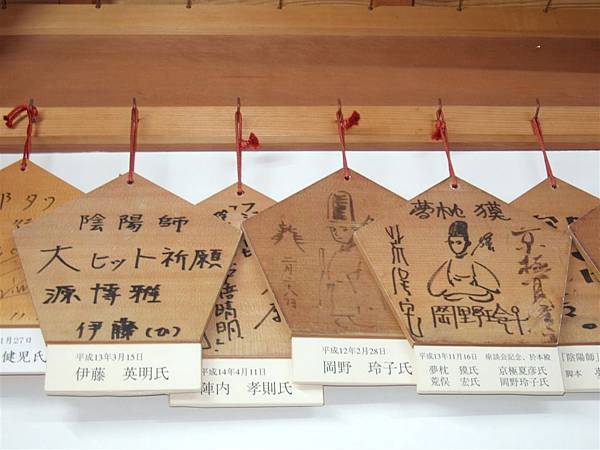 1月27日
健児氏
陰陽師
大ヒット祈願
源博雅
伊藤(力)
平成13年3月15日
伊藤 英明氏
倍晴明
平成14年4月11日
陣内 孝則氏
二月二八日
平成12年2月28日
岡野 玲子氏
夢枕獏
荒俣宏
京極夏彦
岡野玲子
平成13年11月16日 座談会記念、於本殿
夢枕 獏氏 京極夏彦氏
荒俣 宏氏 岡野玲子氏
「陰陽師」
脚本